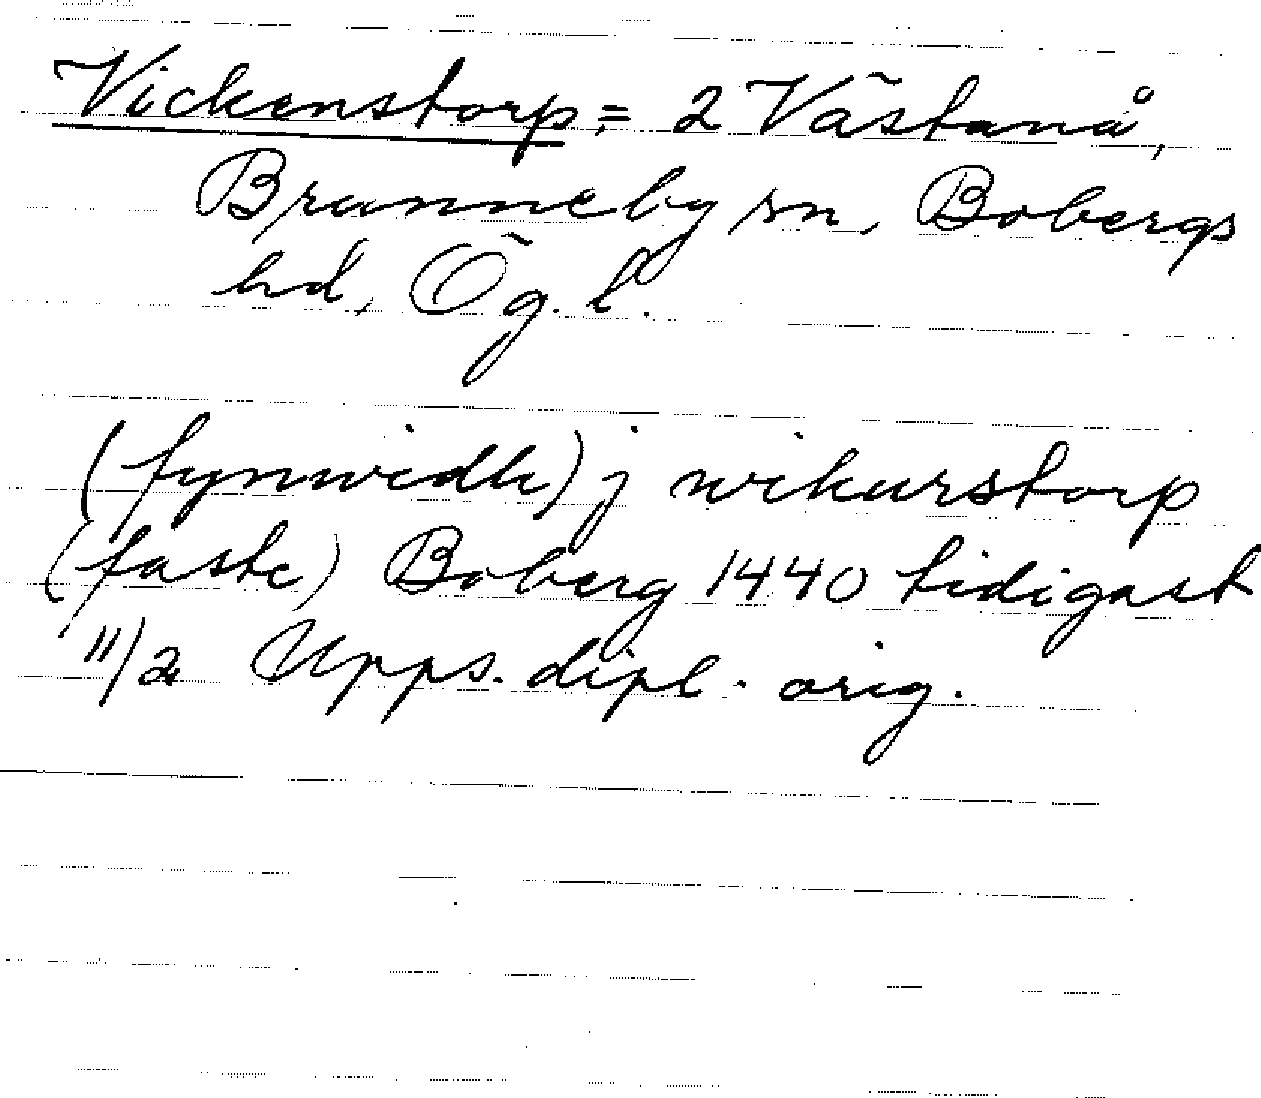 Vickenstorp = 2 Västanå,
Brunneby sn, Bobergs
hd, Ög. l.
(fynwidh) j wikurstorp
(faste) Boberg 1440 tidigast
11/2 Upps. dipl. orig.